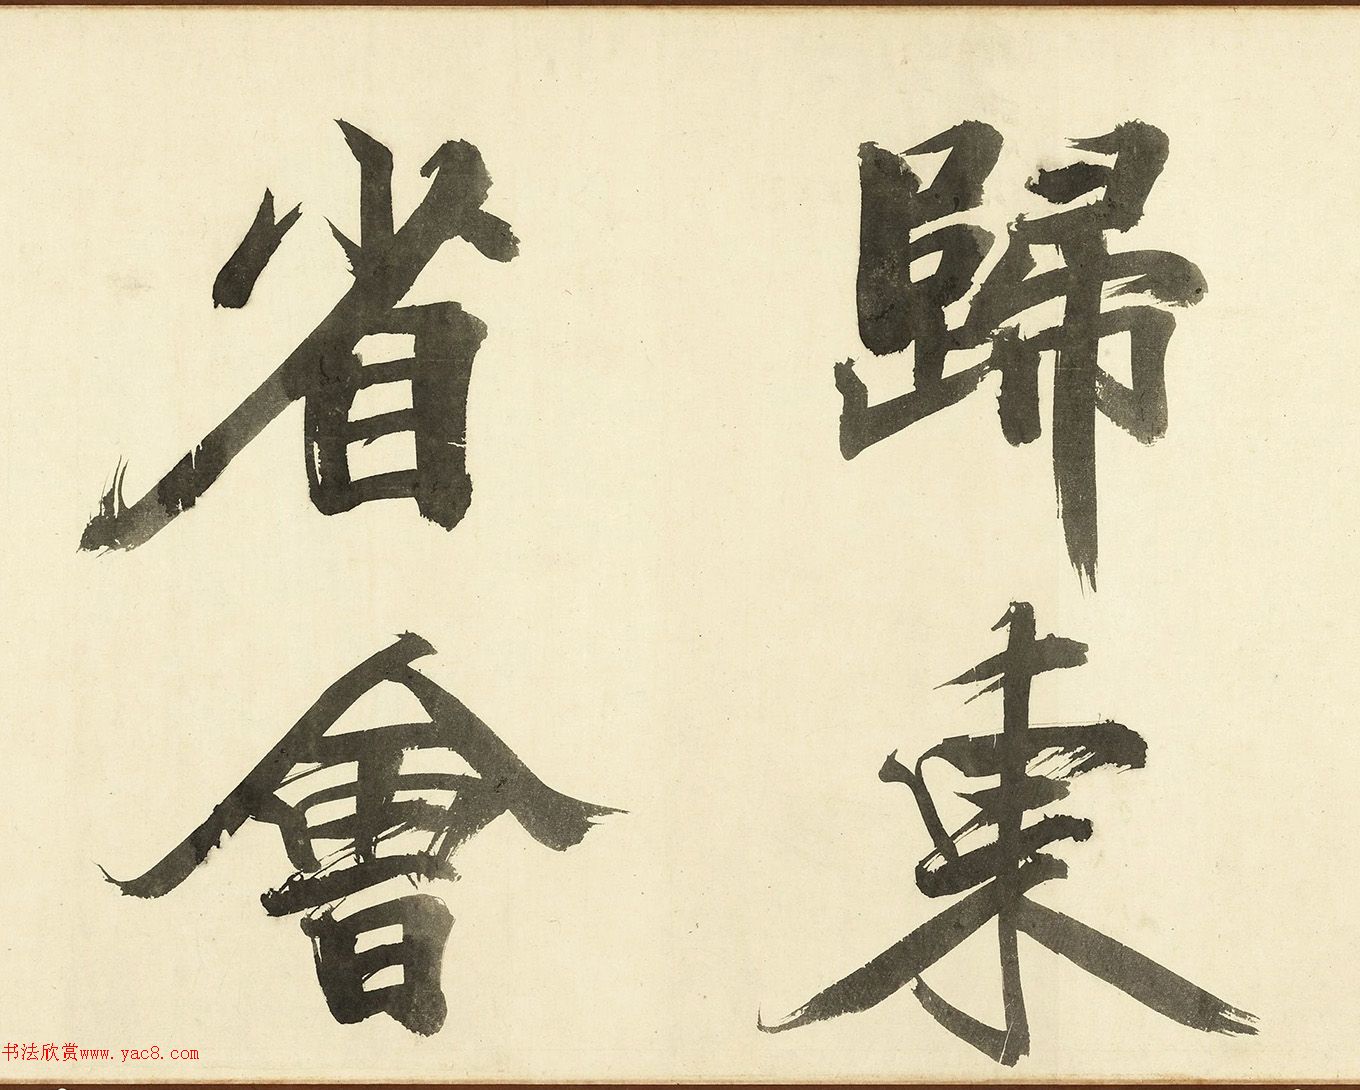 歸東
省會
书法欣赏www.yac8.com